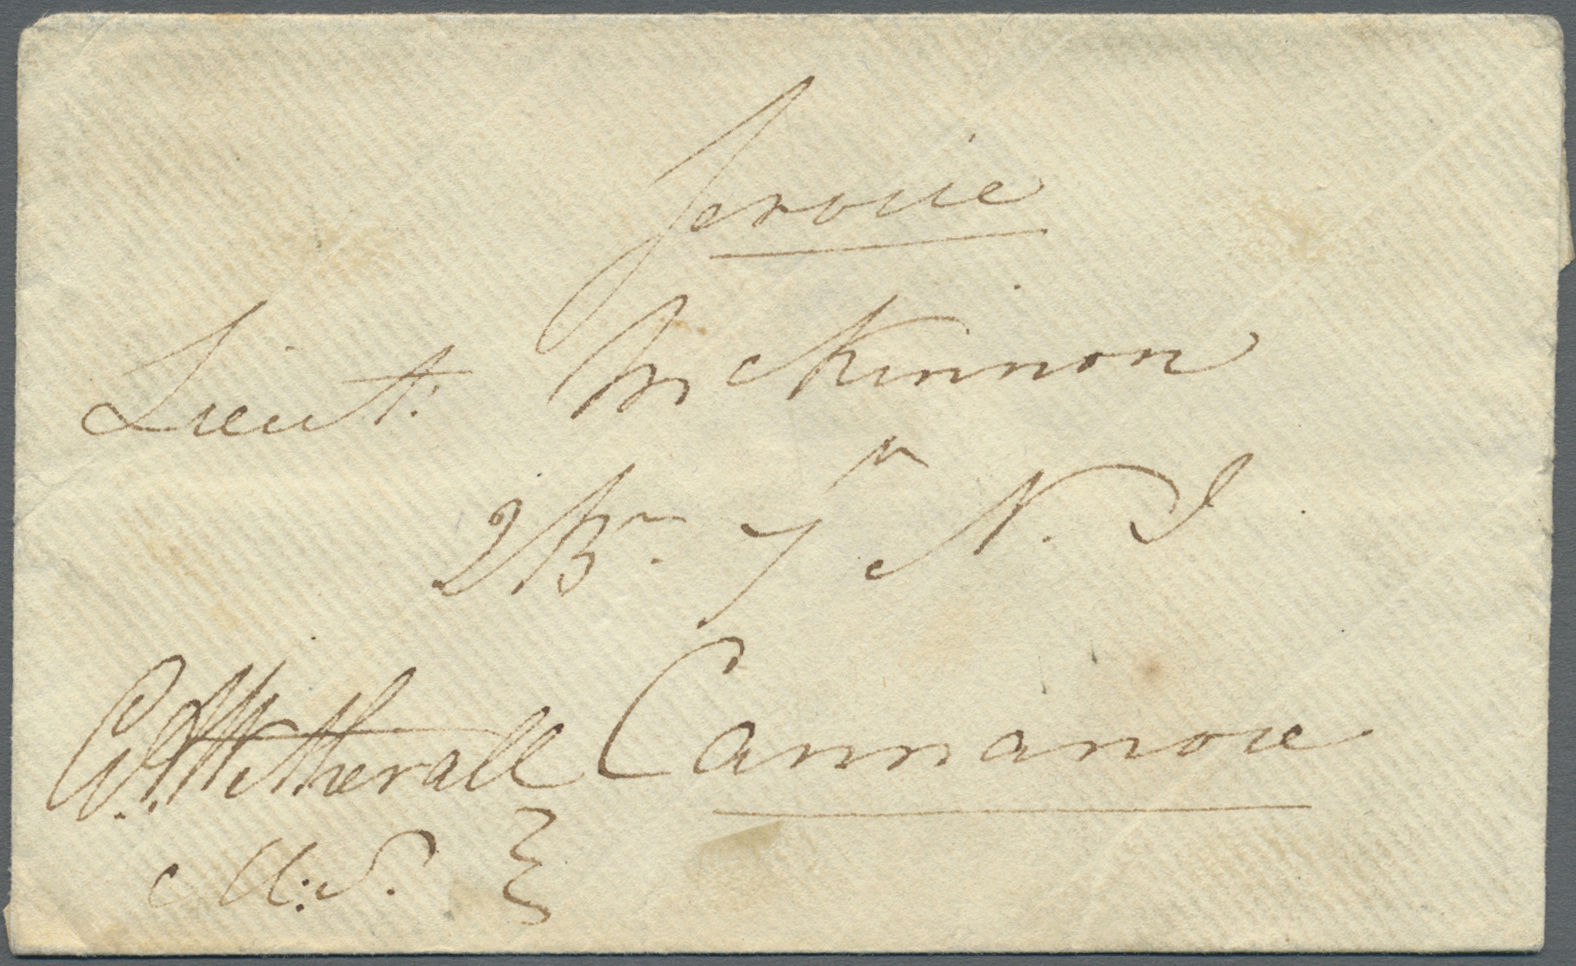 Service
Lieut: McKinnon
2 Bn. 7th N. I.
Cannanore
G. A. Wetherall
M: S.